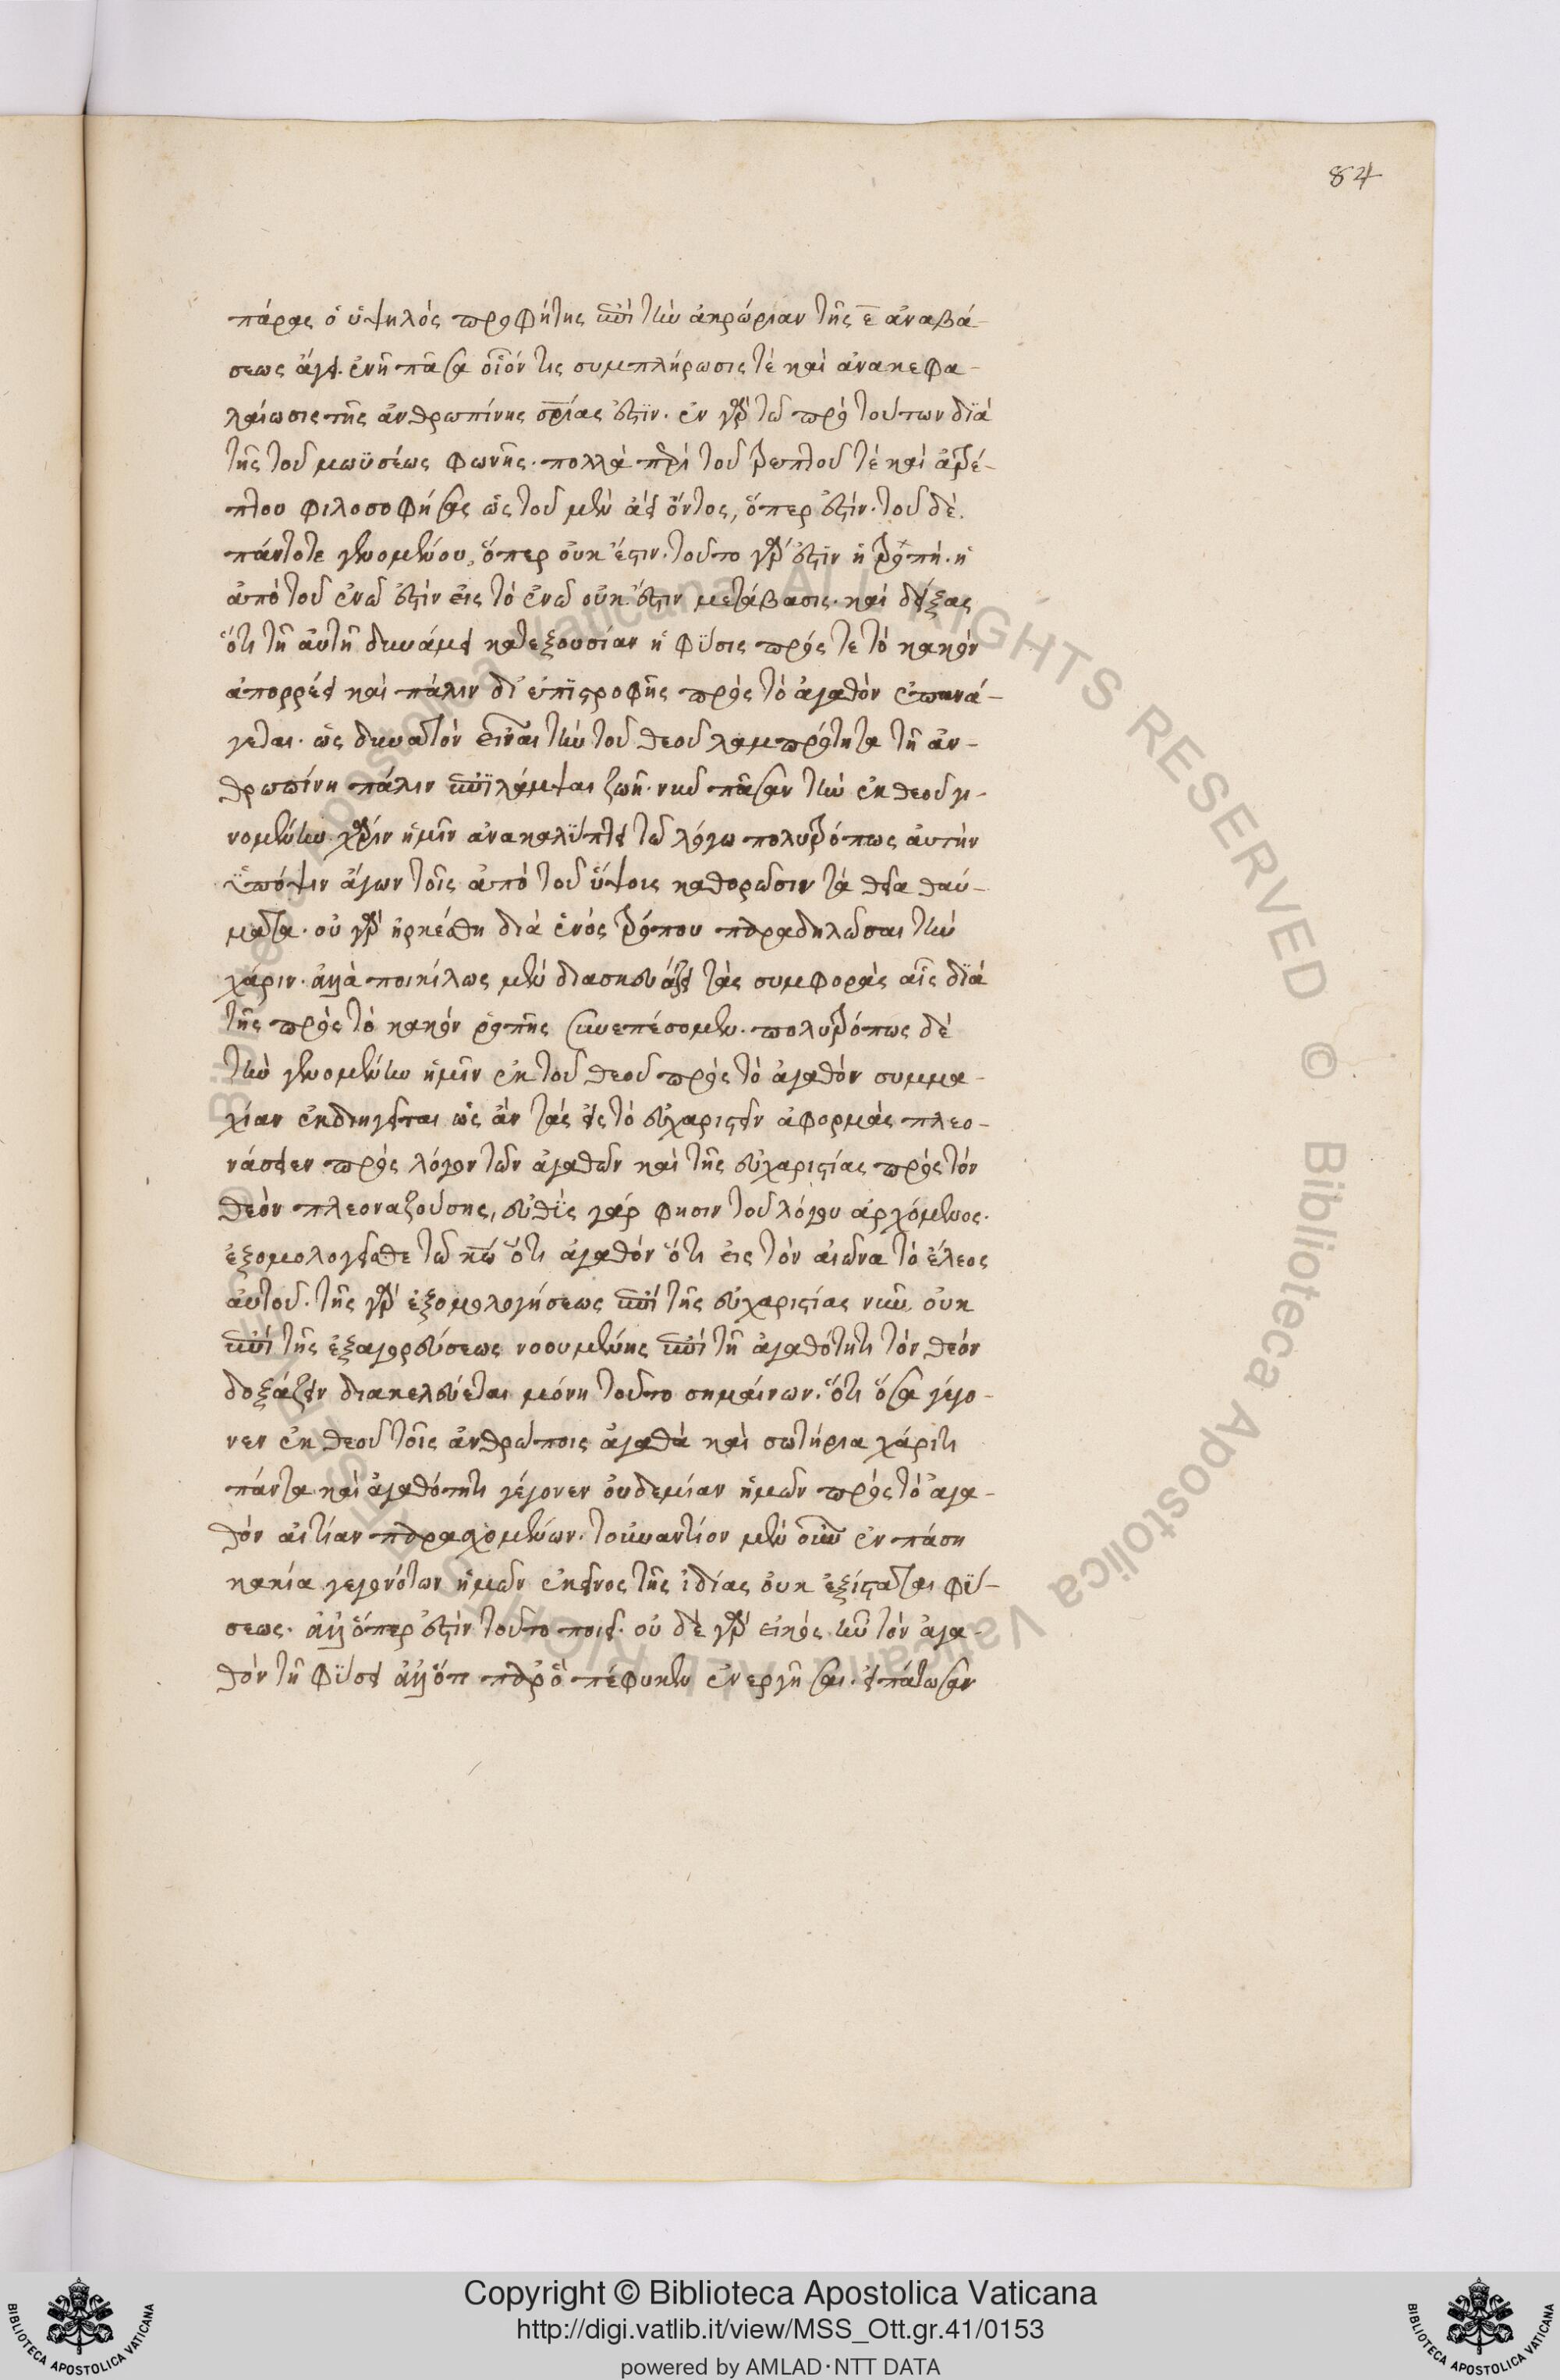 84
πάρας ὁ ὑψηλὸς προφήτης ἐπὶ τὴν ἀκρώριαν τῆς ε̄ ἀναβά-
σεως ἄγει. ἐν ᾗ πᾶσα οἷόν τις συμπλήρωσις τὲ καὶ ἀνακεφα-
λαίωσις τῆς ἀνθρωπίνης σρίας ἐστϊν. ἐν γὰρ τῶ πρὸ τούτων διὰ
τῆς τοῦ μωϋσέως φωνῆς. πολλὰ περὶ τοῦ τρεπτοῦ τὲ καὶ ἀτρέ-
πτου φιλοσοφήσας ὡς τοῦ μὲν ἀεὶ ὄντος, ὅπερ ἐστίν. τοῦ δὲ
πάντοτε γινομένου, ὅπερ οὐκ ἔστιν. τοῦτο γὰρ ἐστῒν ἡ τροπὴ. ἡ
ἀπὸ τοῦ ἐν ὧ ἐστὶν εἰς τὸ ἐν ὧ οὐκ ἔστιν μετάβασις. καὶ δείξας
ὅτι τῆ αὐτῆ δυνάμει κατεξουσίαν ἡ φύσις πρός τε τὸ κακὸν
ἀπορρέει καὶ πάλιν δι' ἐπιστροφῆς πρὸς τὸ ἀγαθὸν ἐπανά-
γεται. ὡς δυνατὸν εἶναι τὴν τοῦ θεοῦ λαμπρότητα τῆ ἀν-
θρωπίνη πάλιν ἐπϊλάμψαι ζωῆ. νῦν πᾶσαν τὴν ἐκ θεοῦ γι-
νομένην χάριν ἡμῖν ἀνακαλύπτει τῶ λόγω πολυτρόπως αὐτὴν
ὑπόψιν ἄγων τοῖς ἀπὸ τοῦ ὕψοις καθορῶσιν τὰ θεῖα θαύ-
ματα. οὐ γὰρ ἠρκέσθη διὰ ἑνὸς τρόπου παραδηλῶσαι τὴν
χάριν. ἀλλὰ ποικίλως μὲν διασκευάζει τὰς συμφορὰς αἷς διὰ
τῆς πρὸς τὸ κακὸν ῥοπῆς συνεπέσομεν. πολυτρόπως δὲ
τὴν γινομένην ἡμῖν ἐκ τοῦ θεοῦ πρὸς τὸ ἀγαθὸν συμμα-
χίαν ἐκδιηγεῖται ὡς ἂν τὰς εἰς τὸ εὐχαριστεῖν ἀφορμὰς πλεο-
νάσειεν πρὸς λόγον τῶν ἀγαθῶν καὶ τῆς εὐχαριστίας πρὸς τὸν
θεὸν πλεοναζούσης, εὐθῒς γάρ φησιν τοῦ λόγου ἀρχόμενος.
ἐξομολογεῖσθε τῶ κῶ ὅτι ἀγαθὸν ὅτι εἰς τὸν αἰῶνα τὸ ἔλεος
αὐτοῦ. τῆς γὰρ ἐξομολογήσεως ἐπὶ τῆς εὐχαριστίας νῦν οὐκ
ἐπὶ τῆς ἐξαγορεύσεως νοουμένης ἐπὶ τῆ ἀγαθότητι τὸν θεὸν
δοξάζειν διακελεύεται μόνη τοῦτο σημαίνων. ὅτι ὅσα γέγο-
νεν ἐκ θεοῦ τοῖς ἀνθρώποις ἀγαθὰ καὶ σωτήρια χάριτι
πάντα καὶ ἀγαθότητι γέγονεν οὐδεμίαν ἡμῶν πρὸς τὸ ἀγα-
θὸν αἰτίαν παρασχομένων. τοὐναντίον μὲν οὖν ἐν πάση
κακία γεγονότων ἡμῶν ἐκεῖνος τῆς ἰδίας οὐκ ἐξίσταται φύ-
σεως. ἀλλ' ὅπερ ἐστὶν τοῦτο ποιεῖ. οὐ δὲ γὰρ εἰκὸς ἦν τὸν ἀγα-
θὸν τῆ φύσει ἀλλ' ὅπ παρ' ὃ πέφυκεν ἐνεργῆσαι. εἰπάτωσαν
Copyright © Biblioteca Apostolica Vaticana
http://digi.vatlib.it/view/MSS_Ott.gr.41/0153
powered by AMLAD·NTT DATA